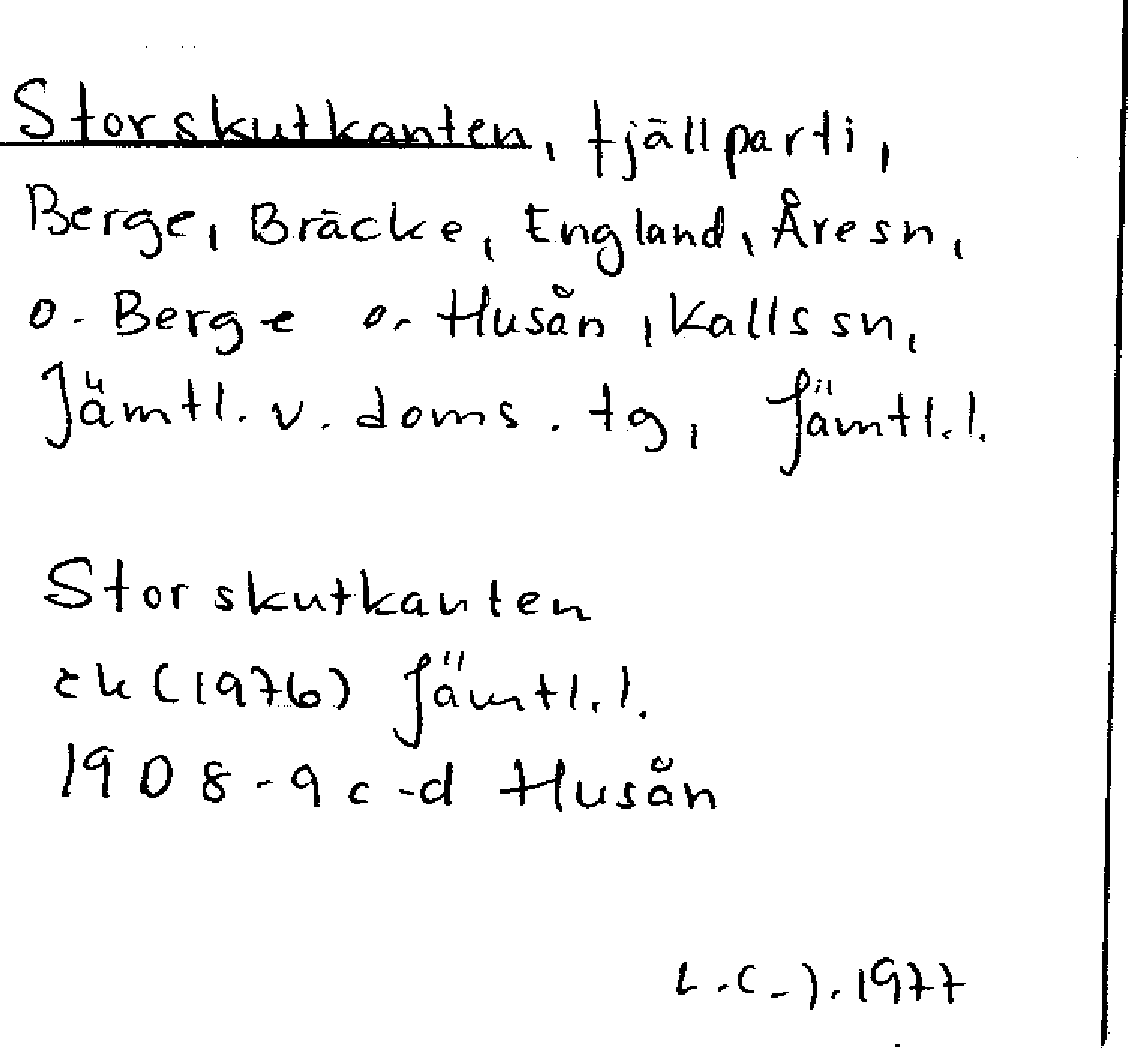 Storskutkanten, fjällparti,
Berge, Bräcke, England, Åresn,
o. Berge o. Husån, Kalls sn,
Jämtl. v. doms. tg, Jämtl. l.
Storskutkanten
ek (1976) Jämtl. l.
1908-9c-d Husån
L.C-J. 1977